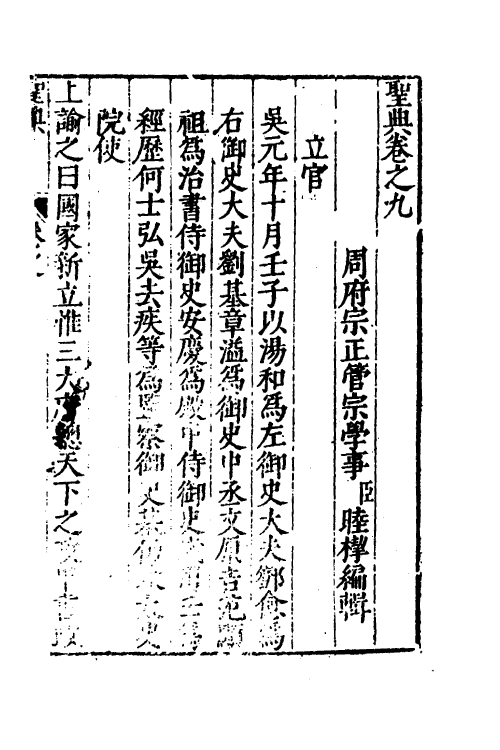 聖典卷之九
周府宗正管宗學事臣睦㮮編輯
立官
吳元年十月壬子以湯和為左御史大夫鄧愈為
右御史大夫劉基章溢為御史中丞文原吉范顯
祖為治書侍御史安慶為殿中侍御史為
經歷何士弘吳去疾等為監察御史基仍兼太史
院使
上諭之曰國家新立惟三大府總天下之中書政
聖典